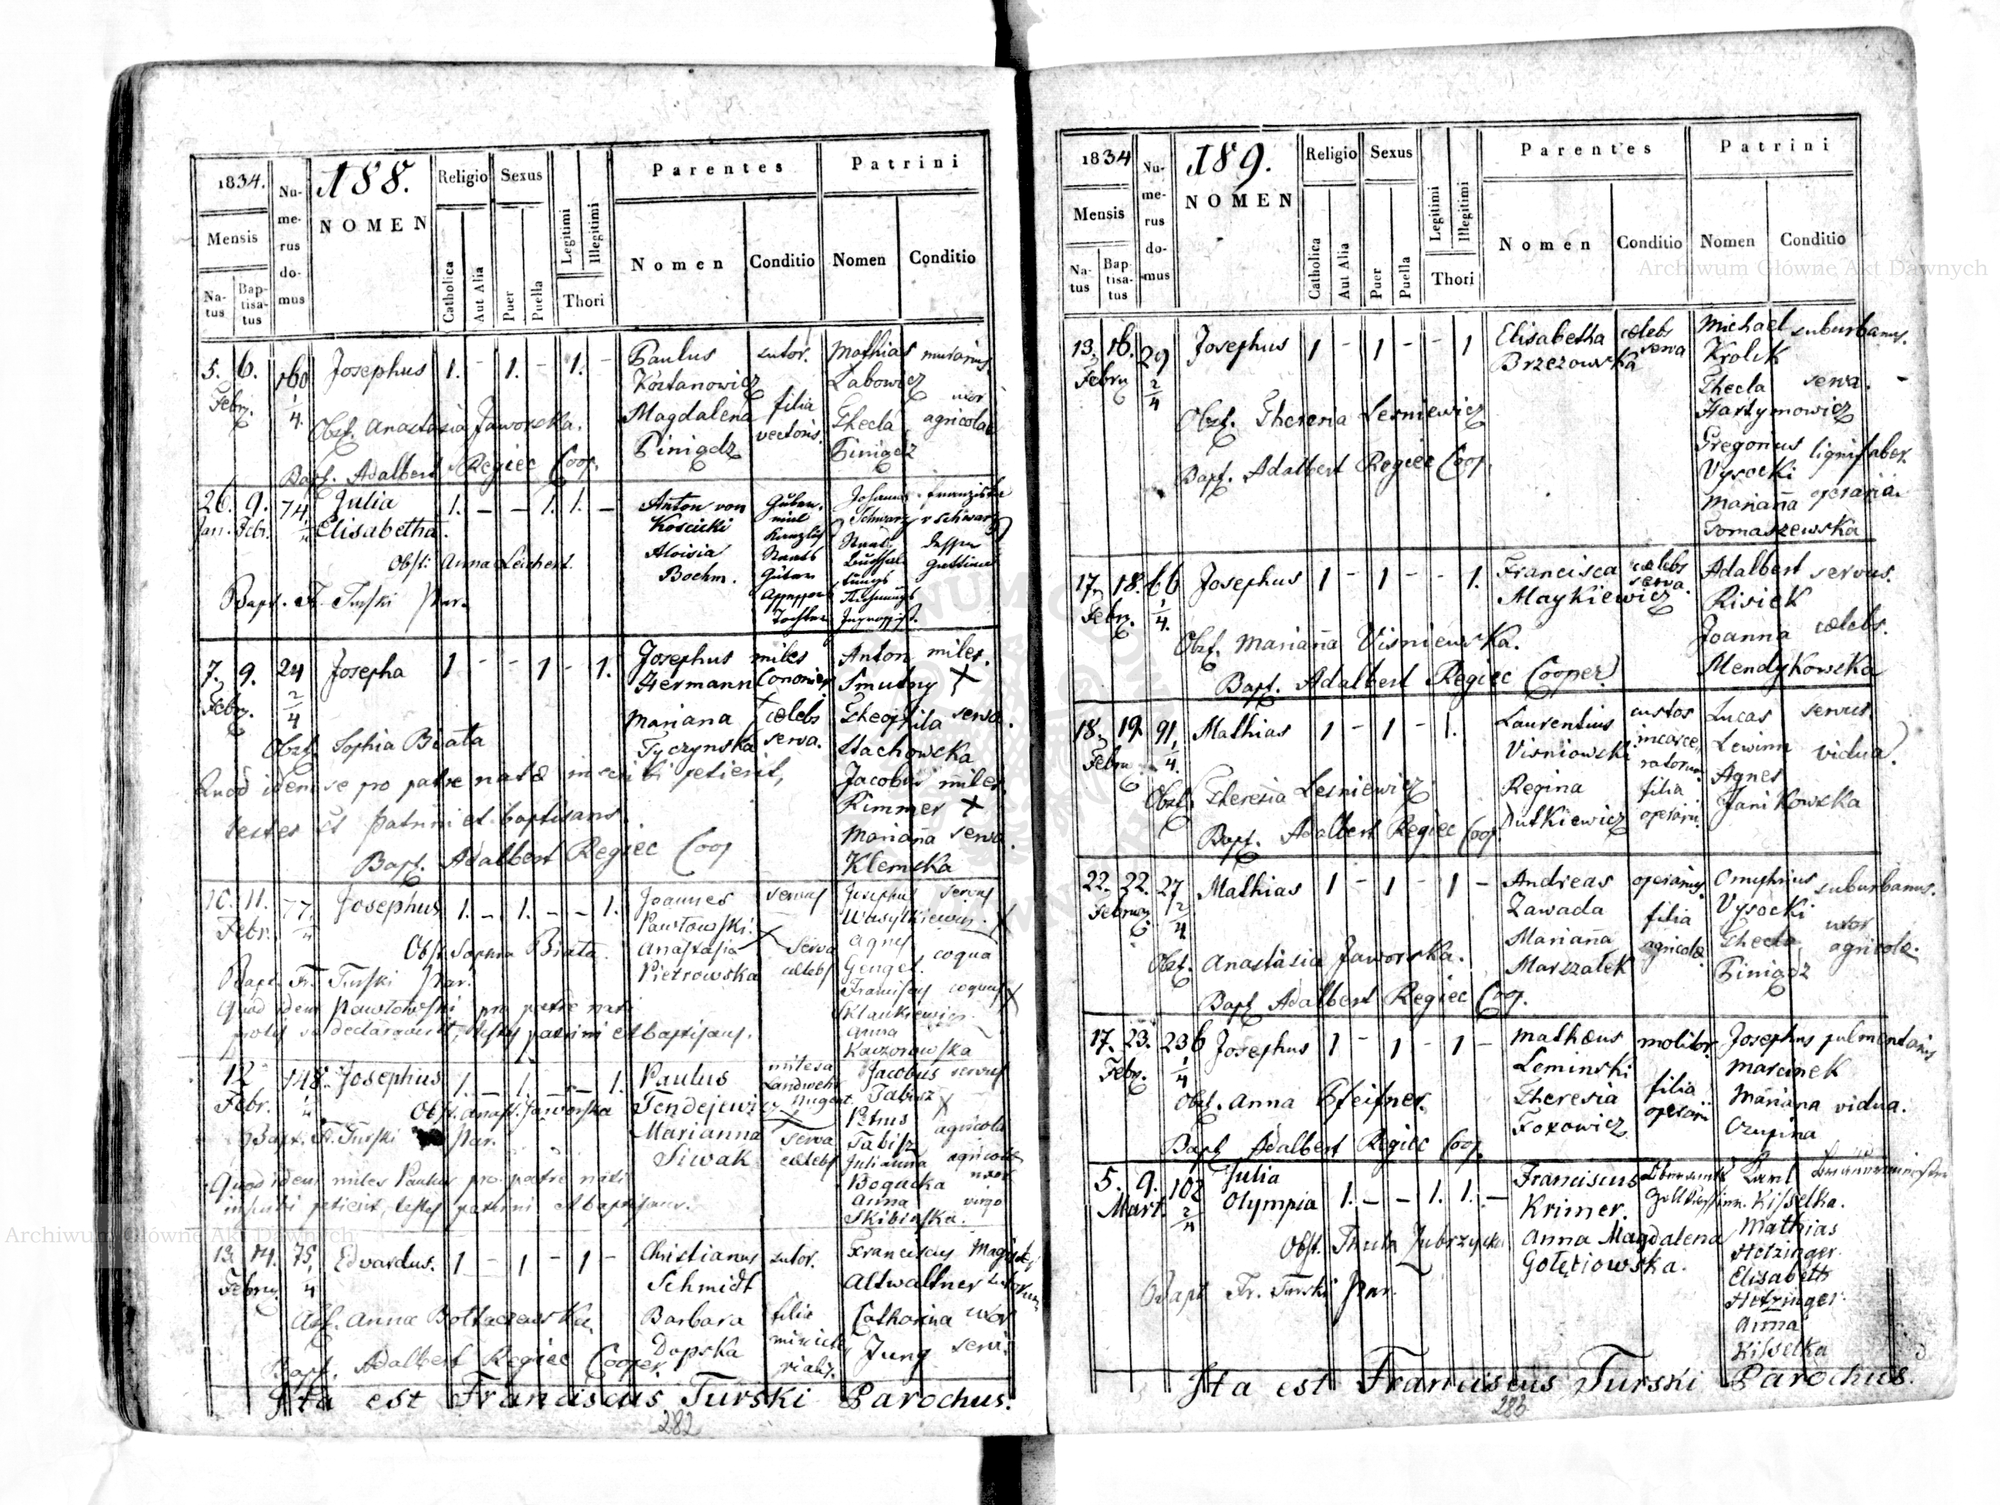 1834.
Numerus domus
188.
NOMEN
Religio
Sexus
Parentes
Patrini
Mensis
Natus
Baptisatus
Catholica
Aut Alia
Puer
Puella
Legitimi
Illegitimi
Thori
Nomen
Conditio
Nomen
Conditio
5. 6. 160 Josephus 1. - 1. - 1. - Paulus sutor. Mathias murarius
Febr. 1/4. Labowicz
Magdalena filia uxor
Obst. Anastasia Jaworska. vectoris. Thecla agricolae
Piniądz Piniądz
Bapt. Adalbert Regiec Coop.
26. 9. 74 Julia 1. - - 1. 1. - Anton von
Jan. Febr. Elisabetha. Schwarz v Schwarz
Obst: Anna Leichert. Aloisia
Boehm.
Bapt. Fr. Turski Par.
7. 9. 24 Josepha 1 - - 1 - 1. Josephus miles Anton miles.
Febr. 2/4 Hermann Smutny X
Mariana caelebs Theophila serva.
Obst Sophia Biała Tyczynska serva. Stachowska
Quod idem se pro patre natae inscribi petierit, Jacobus miles
Rimmer X
testes et patrini et baptisans. Mariana serva.
Bapt. Adalbert Regiec Coop Klemska
10. 11. 77. Josephus 1. - 1. - - 1. Joannes servus Josephus servus
Febr. Pawłowski. Wasylkiewicz. X
Obst Sophia Biata. Anastasia serva Agnes coqua
Bapt. Fr. Turski Par. Pietrowska caelebs
Quod idem Pawłowski pro patre nati Franciscus coquus X
Anna
Kaczorowska
12 148. Josephus 1. - 1. - - 1. Paulus Jacobus servus
Febr. Obst. Anast. Jaworska Tendejewicz Tabisz X
Bapt. Fr. Turski Par. Marianna serva Petrus agricola
Siwak caelebs Tabisz
Julianna agricolae
Quod idem miles Paulus pro patre nati Bogacka uxor
inscribi petierit, testes patrini et baptisans. Anna virgo
Skibinska.
13. 14. 75. Edvardus. 1 - 1 - 1 - Christianus sutor. Franciscus Magister
Febr. Schmidt Altwaltner sutorum
Obst. Anna Bołtaczewska. Barbara filia Catharina uxor
Dopska Jung servi.
Bapt. Adalbert Regiec Cooper.
Ita est Franciscus Turski Parochus.
282
1834
Numerus domus
189.
NOMEN
Religio
Sexus
Parentes
Patrini
Mensis
Natus
Baptisatus
Catholica
Aut Alia
Puer
Puella
Legitimi
Illegitimi
Thori
Nomen
Conditio
Nomen
Conditio
13. 16. 29 Josephus 1 - 1 - - 1 Elisabetha caelebs Michael suburbanus.
Febru 2/4 Brzezowska serva Krolik
Thecla serva.
Obst. Theresia Lesniewicz Hartymowicz
Gregorius lignifaber
Bapt. Adalbert Regiec Coop. Wysocki
Marianna operaria.
Tomaszewska
17. 18. 66 Josephus 1 - 1 - - 1. Francisca caelebs Adalbert servus.
Febr. 1/4. Maykiewicz serva. Risiek
Obst. Marianna Visniewska. Joanna caelebs.
Bapt. Adalbert Regiec Cooper. Mendykowska
18. 19. 91. Mathias 1 - 1 - 1. Laurentius custos Lucas servus.
Febru 1/4. Visniowski incarceratorum Lewinn vidua.
Obst. Theresia Lesniewicz Regina filia Agnes
Bapt. Adalbert Regiec Coop. Dutkiewicz operarii. Janikowska
22. 22. 27 Mathias 1 - 1 - 1 - Andreas operarius suburbanus.
Zawada filia Wysocki
Marianna agricolae Thecla uxor
Obst. Anastasia Jaworska. Marszałek Piniądz agricolae.
Bapt Adalbert Regiec Coop.
17. 23. 236 Josephus 1 - 1 - 1 - Mathaeus molitor. Josephus pulmentarius
Febr. 1/4 Leminski Marcinek
Obst. Anna Pfeifner. Theresia filia Mariana vidua.
Foxowicz operarii Czupina
Bapt Adalbert Regiec Coop.
5. 9. 102 Julia
Mart. 2/4 Olympia 1. - - 1. 1. - Franciscus Karl
Krimer. Kisselka.
Obst. Thecla Zubrzycka Anna Magdalena Mathias
Gołętiowska. Hetzinger
Bapt Fr. Turski Par. Elisabeth
Hetzinger.
Anna
Kisselka
Ita est Franciscus Turski Parochus.
283
Archiwum Główne Akt Dawnych
Archiwum Główne Akt Dawnych